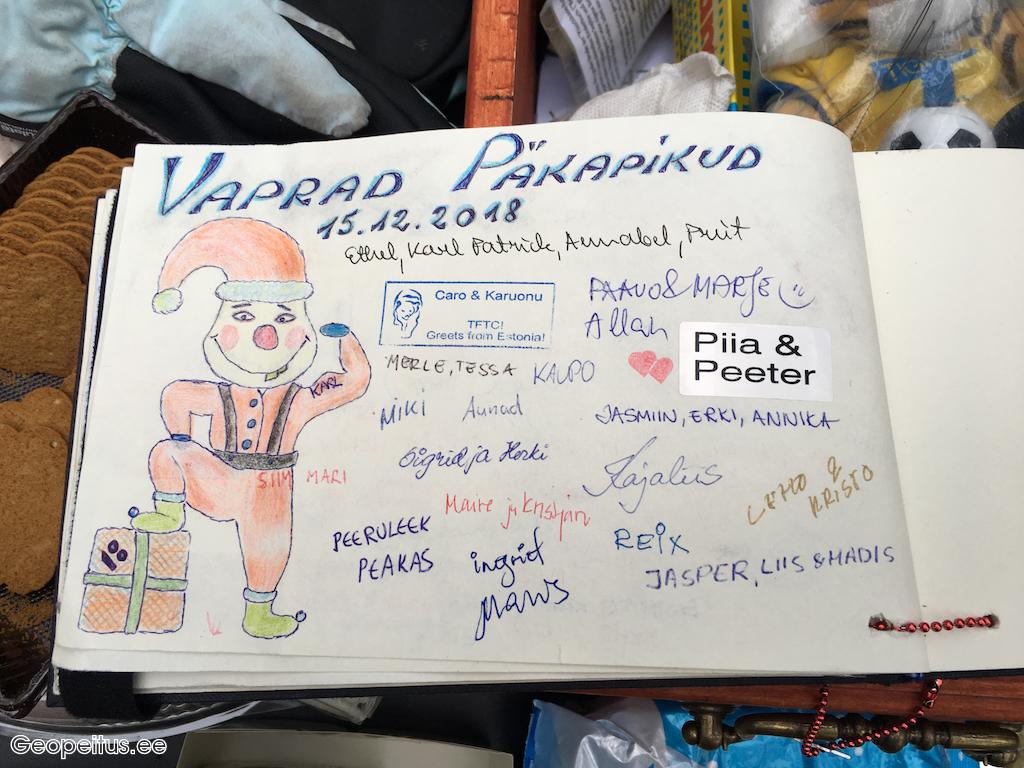 VAPRAD PÄKAPIKUD
15.12.2018
Ethel, Karl Patrick, Annabel, Priit
Caro & Karuonu
TFTC!
Greets from Estonia!
PAAVO & MARJE
Allan
Piia &
Peeter
MERLE, TESSA
KAUPO
KARL
MIKI
JASMIIN, ERKI, ANNIKA
Sigrid ja Herki
SIIM MARI
LEHO &
KRISTO
Maire ja Kristjan
PEERULEEK
PEAKAS
ingrid
REIX
JASPER, LIIS & MADIS
18
Geopeitus.ee